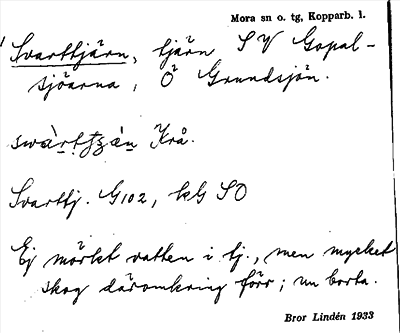 Mora sn o. tg, Kopparb. l.
Svarttjärn, tjärn SV Gopal-
sjöarna, Ö Grundsjön.
Krå.
Svarttj. G102, kbl SO
Ej mörkt vatten i tj., men mycket
skog däromkring förr; nu borta.
Bror Lindén 1933